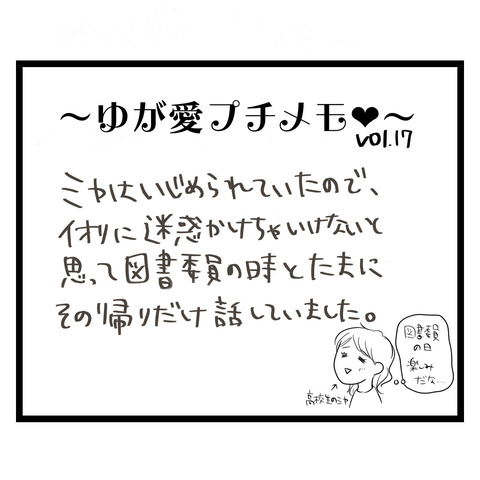 ～ゆが愛プチメモ❤～
vol.17
ミヤはいじめられていたので、
イオリに迷惑かけちゃいけないと
思って図書委員の時とたまに
その帰りだけ話していました。
図書委員
の日
楽しみ
だな…
高校生のミヤ